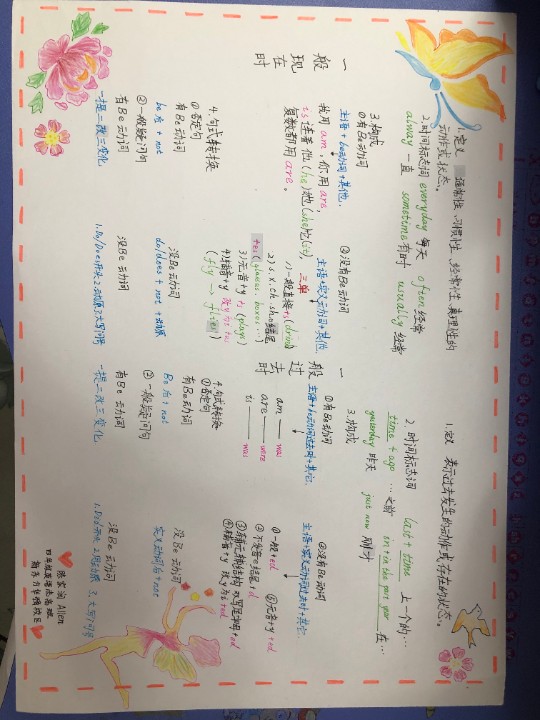 一般现在时
1.定义 通常性、习惯性、经常性、真理性的
动作或状态。
2.时间标志词 everyday 每天 often 经常
always 一直 sometime 有时 usually 经常
3.构成
①有Be动词
主语+be动词+其他.
我用am,你用are,
is连着他(he)她(she)它(it),
复数都用are。
②没有Be动词
主语+实义动词+其他.
三单
1)一般直接+s(drink)
2)s.x.ch.sh.o结尾
+es(glasses boxes…)
3)元音+y +s (plays)
4)辅音+y 改y为i+es
(fly → flies)
4.句式转换
①否定句
有Be动词
be后+not
没Be动词
do/does+not+动原
②一般疑问句
有Be动词
一提二改三变化
没Be动词
1.Do/Does开头 2.动原 3.大写?问号
一般过去时
1.定义 表示过去发生的动作或存在的状态。
2.时间标志词 last+time 上一个的…
time+ago …之前 in the past year 在…
yesterday 昨天 just now 刚才
3.构成
①有Be动词
主语+be动词过去时+其它.
am — was
are — were
is — was
②没有Be动词
主语+实义动词过去时+其它.
①一般+ed
②不发音e结尾+d
④辅音+y 改y为i+ed
⑤元音+y +ed
4.句式转换
①否定句
有Be动词
Be后+not
没Be动词
②一般疑问句
有Be动词
一提二改三变化
没Be动词
1.Did开头 2.动原 3.大写?问号
Allen